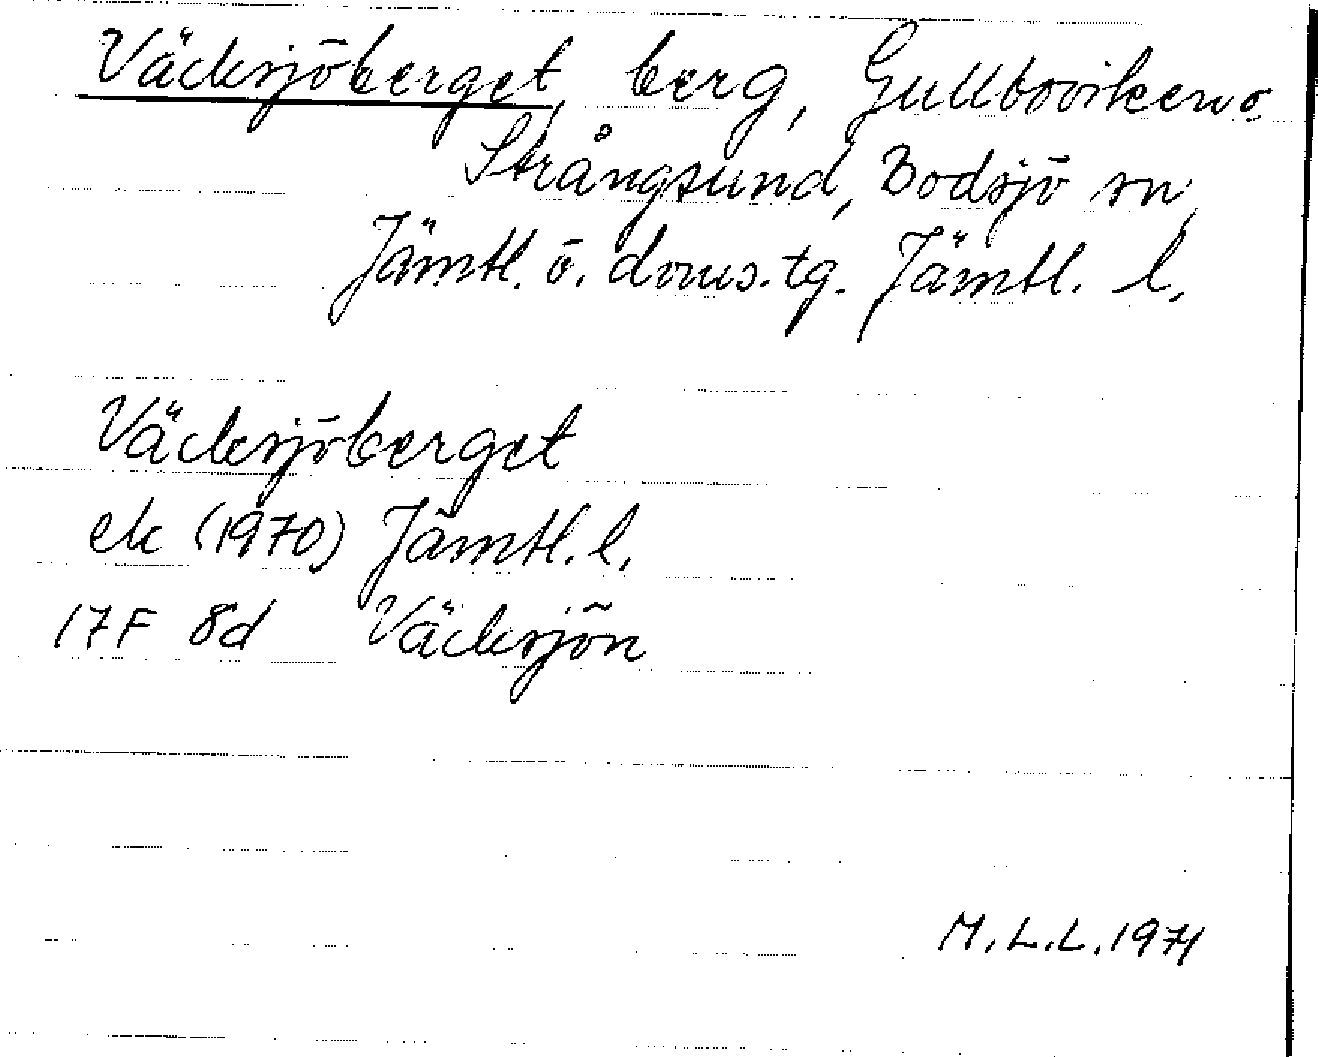 Väcksjöberget, berg, Gullboviken o.
Strångsund, Bodsjö sn,
Jämtl. ö. doms. tg. Jämtl. l.
Väcksjöberget
ek (1970) Jämtl. l.
17F 8d Väcksjön
M.L.L. 1974